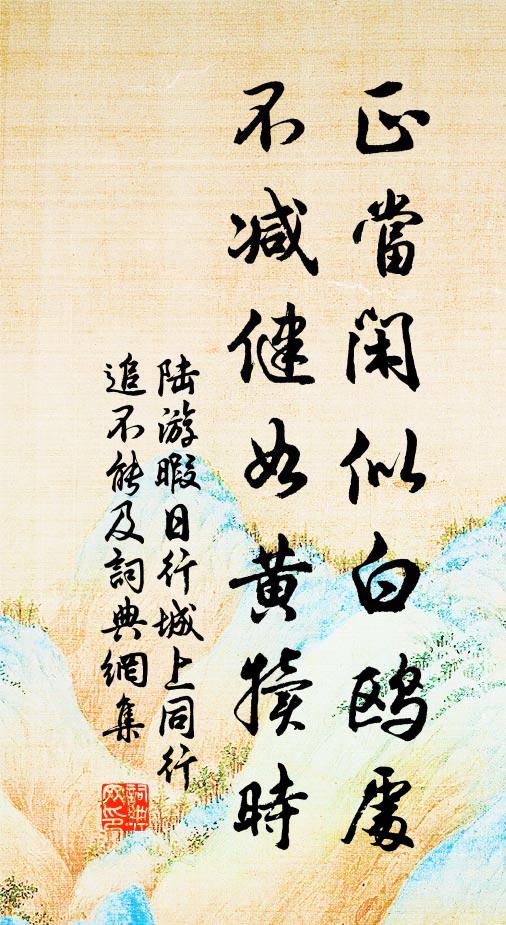 正當閑似白鸥處
不减健如黄犊時
陆游暇日行城上同行
追不能及詞典網集